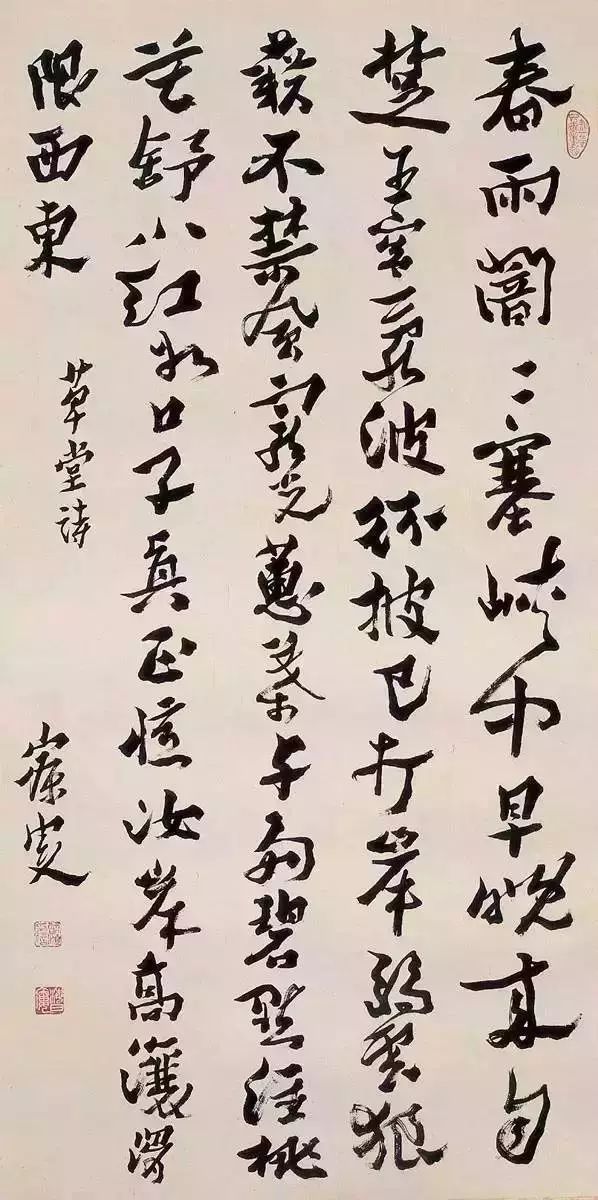 春雨闇〻塞峽中早晚来自
楚王宮亂波紛披已打岸弱雲狼
藉不禁風寵光蕙葉与多碧點注桃
花舒小紅谷口子真正憶汝岸高瀼滑
限西東
草堂詩
寐叟